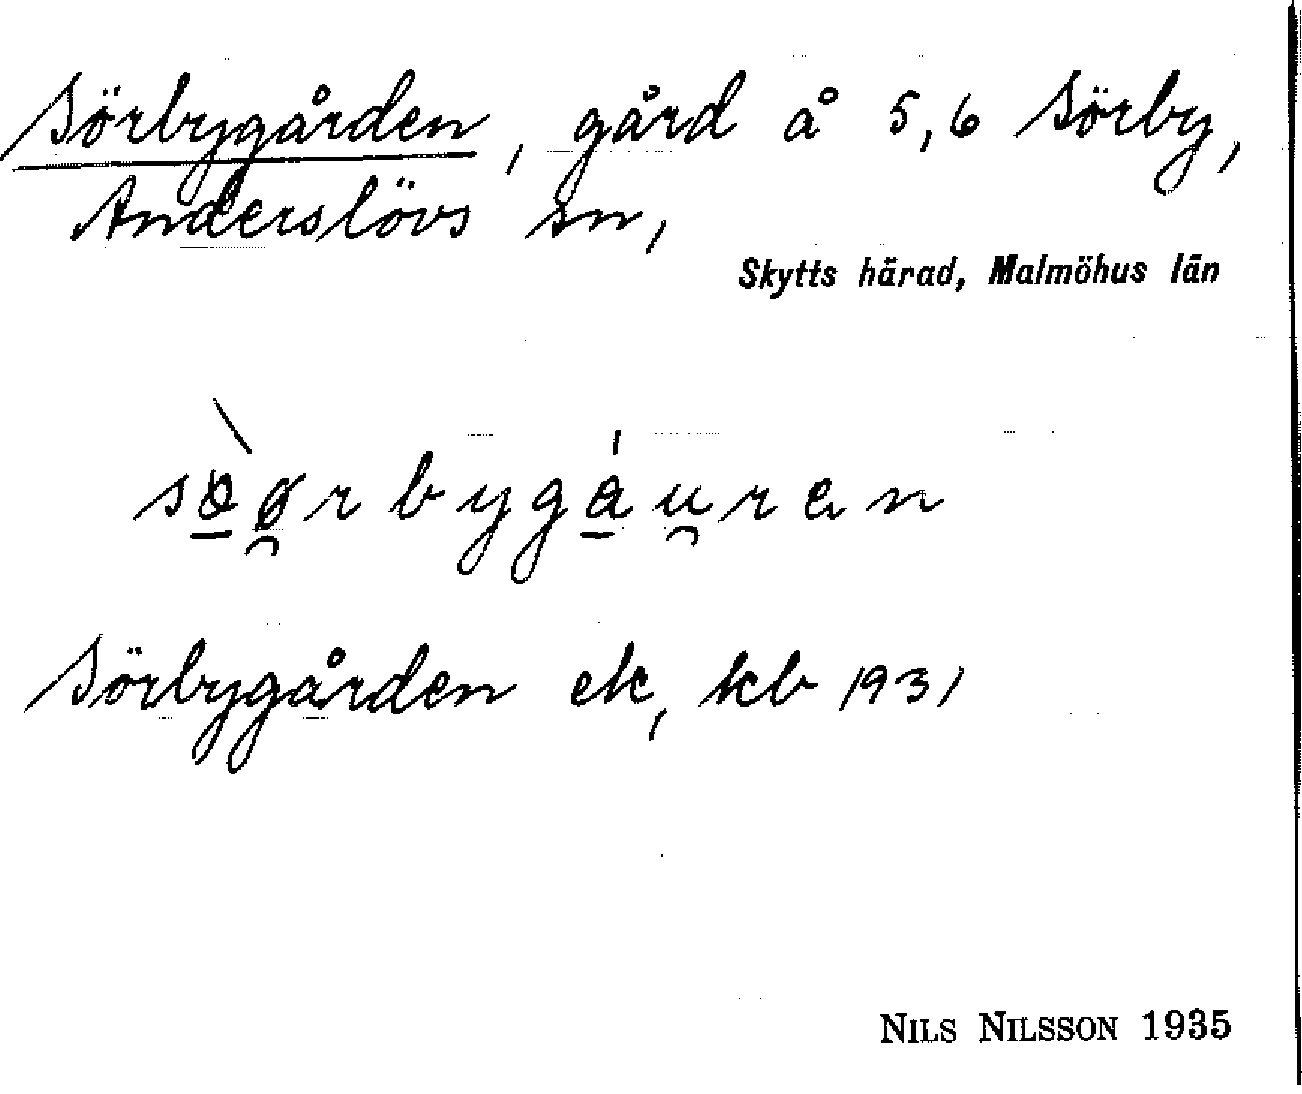 Sörbygården, gård å 5,6 Sörby,
Anderslövs sn,
Skytts härad, Malmöhus län
sòø̯rbygáu̯ren
Sörbygården ek, kb 1931
NILS NILSSON 1935